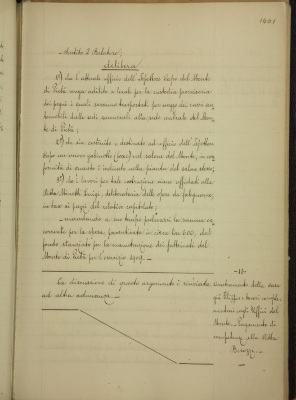 1401
Sentito il Relatore;
delibera
1°) che l'attuale ufficio dell'Ispettore Capo del Monte
di Pietà venga adibito a locale per la custodia provvisoria
dei pegni i quali saranno trasportati per mezzo dei carri au-
tomobili dalle sedi succursali alla sede centrale del Monte
di Pietà;
2°) che sia costruito e destinato ad ufficio dell'Ispettore
Capo un nuovo gabinetto nel salone del Monte, in con-
formità di quanto è indicato nella pianta del salone stesso;
3°) che i lavori per tale costruzione siano affidati alla
Ditta Luigi, deliberataria delle opere da falegname,
in base ai prezzi del relativo capitolato;
mandando a suo tempo prelevarsi la somma oc-
corrente per la spesa, preventivata in circa lire 600, dal
fondo stanziato per la manutenzione dei fabbricati del
Monte di Pietà per l'esercizio 1909.
La discussione di questo argomento è rinviata
ad altra adunanza.
- 18 -
Lavori comple-
mentari negli Uffici del
Monte. Pagamento di
competenze alla Ditta